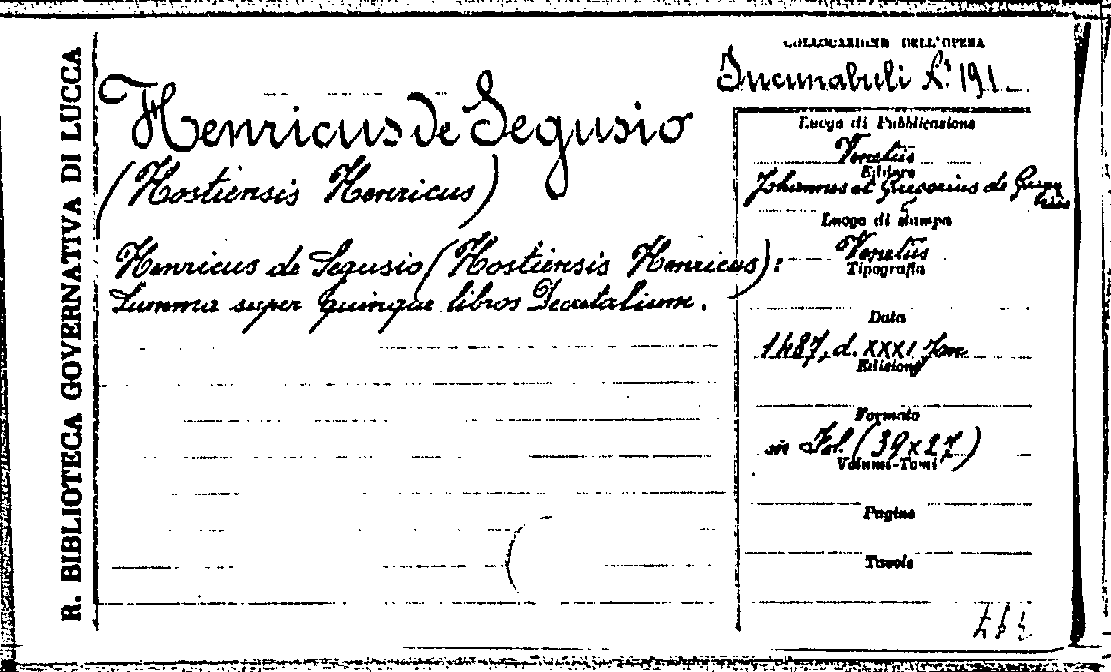 R. BIBLIOTECA GOVERNATIVA DI LUCCA
Henricus de Segusio
(Hostiensis Henricus)
Henricus de Segusio (Hostiensis Henricus):
Summa super quinque libros Decretalium.
COLLOCAZIONE DELL'OPERA
Incunabuli N.º 191
Luogo di Pubblicazione
Venetiis
Editore
Johannes et Gregorius de
Luogo di stampa
Venetiis
Tipografia
Data
1487, d. XXXI Jan
Edizione
Formato
in Fol. (39x27)
Volumi-Tomi
Pagine
Tavole